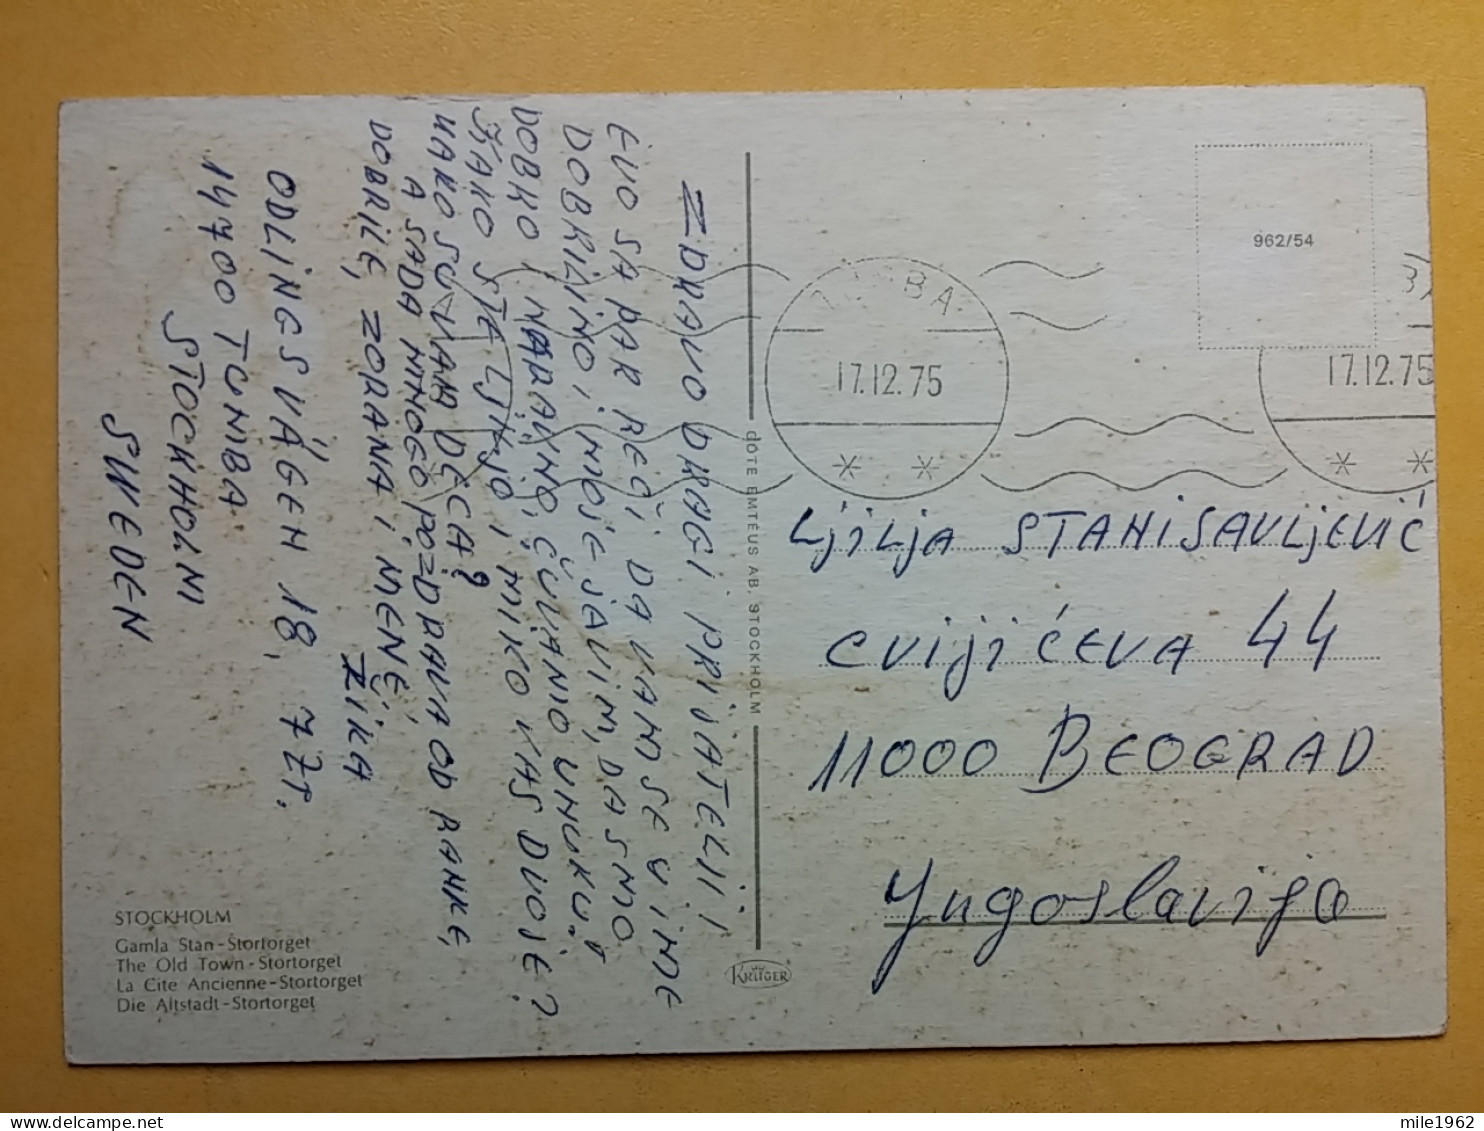 ZDRAVO DRAGI PRIJATELJI!
EVO SA PAR REČI DA VAM SE U IME
DOBRILINO, I MOJE JAVIM, DA SMO
DOBRO I NARAVNO, ČUVAMO UNUKU!
KAKO STE LJILJO I MIKO VAS DVOJE?
KAKO SU VAM DECA?
A SADA MNOGO POZDRAVA OD RANKE,
DOBRILE, ZORANA I MENE,
ŽIKA
ODLINGSVÄGEN 18, 7 ZT.
14700 TUMBA
STOCKHOLM
SWEDEN
STOCKHOLM
Gamla Stan - Stortorget
The Old Town - Stortorget
La Cite Ancienne - Stortorget
Die Altstadt - Stortorget
dÔTE EMTÉUS AB, STOCKHOLM
KRÜGER
962/54
TUMBA
17.12.75
17.12.75
LjiLjA STANiSAVLjEViĆ
CVijiĆEVA 44
11000 BEOGRAD
Yugoslavija
mile1962